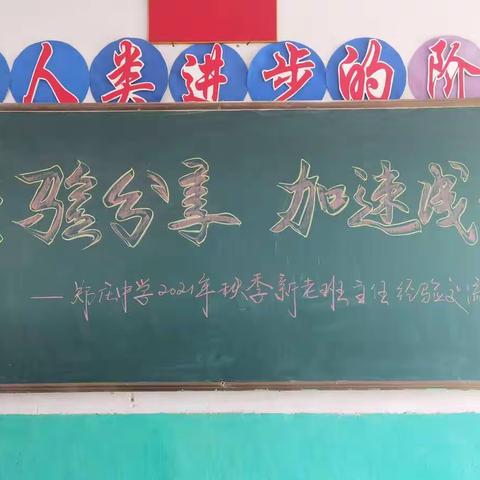 人类进步的阶
验分享 加速成
——郑庄中学2021年秋季新老班主任经验交流